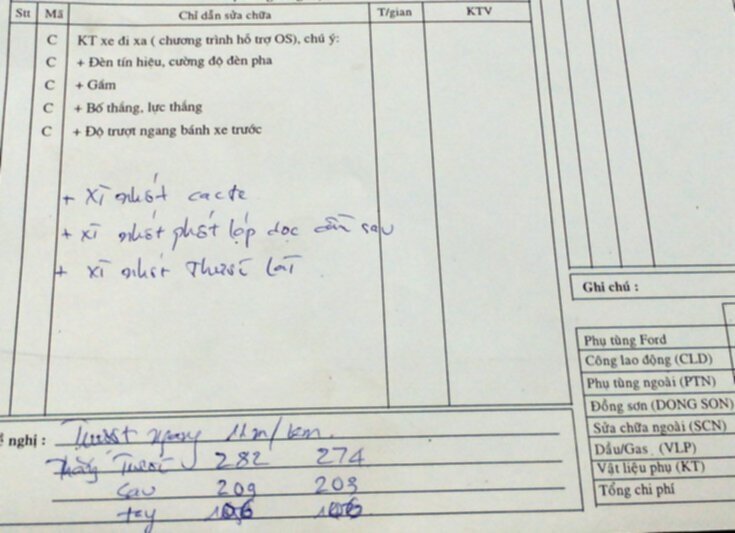 Stt Mã Chỉ dẫn sửa chữa T/gian KTV
C KT xe đi xa ( chương trình hỗ trợ OS), chú ý:
C + Đèn tín hiệu, cường độ đèn pha
C + Gầm
C + Bố thắng, lực thắng
C + Độ trượt ngang bánh xe trước
+ xì nhớt cacte
+ xì nhớt phốt láp dọc cầu sau
+ xì nhớt thước lái
Ghi chú :
Phụ tùng Ford
Công lao động (CLD)
Phụ tùng ngoài (PTN)
Đồng sơn (DONG SON)
Sửa chữa ngoài (SCN)
Dầu/Gas (VLP)
Vật liệu phụ (KT)
Tổng chi phí
nghị : Trượt ngang 11m/km.
Thắng Trước 282 274
sau 209 203
tay 106